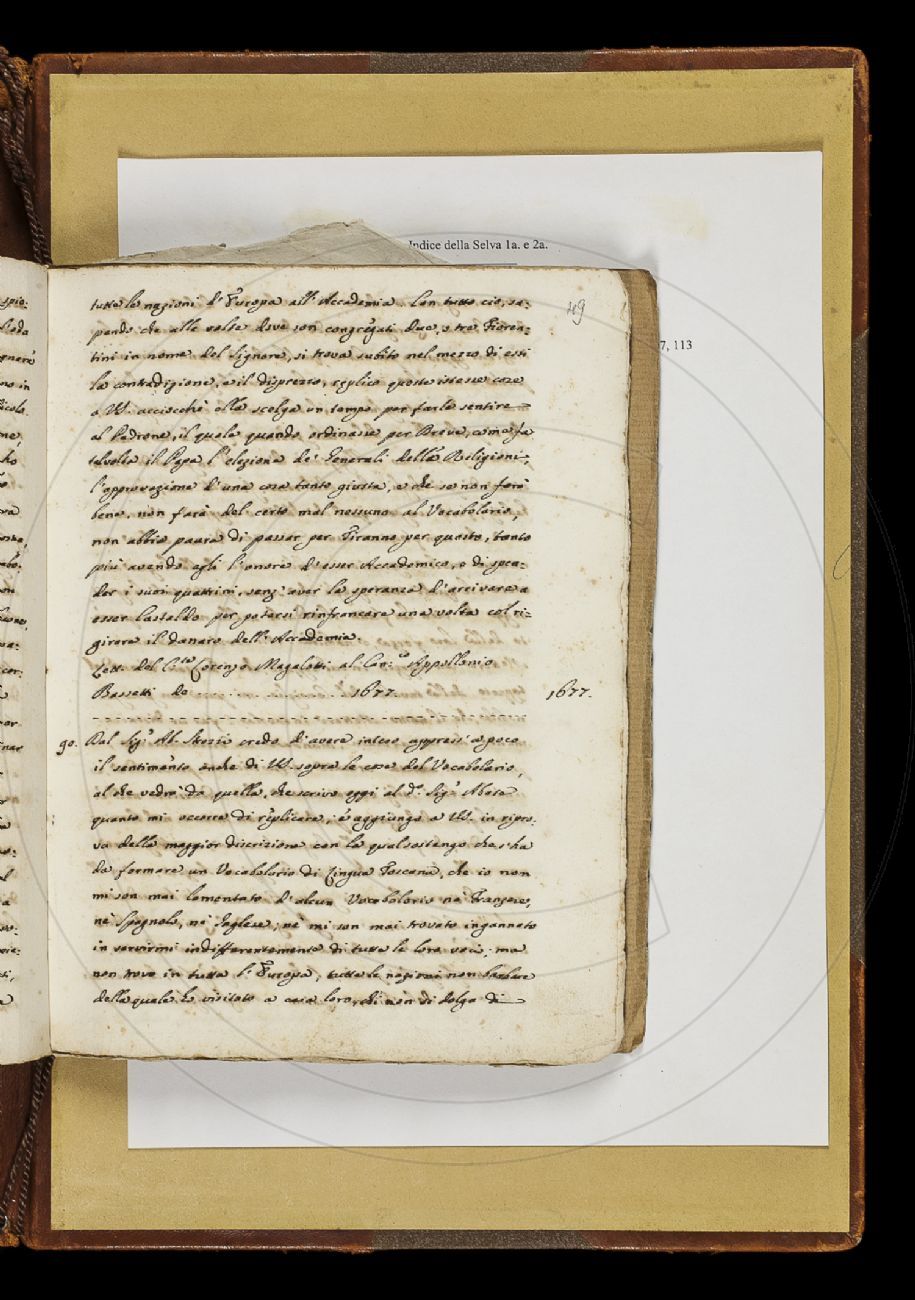 Indice della Selva 1a. e 2a.
7, 113
49
tutte le nazioni d'Europa all'Accademia. Con tutto ciò, sa-
pendo che alle volte dove son congregati due, o tre Fioren-
tini in nome del Signore, si trova subito nel mezzo di essi
la contradizione, e il disprezzo, replico queste istesse cose
a VS. acciocchè ella scelga un tempo per farle sentire
al Padrone, il quale quando ordinasse per Breve, come fa
talvolta il Papa l'elezione de' Generali delle Religioni,
l'approvazione d'una cosa tanto giusta, e che se non farà
bene, non farà del certo mal nessuno al Vocabolario,
non abbia paura di passar per Tiranno per questo, tanto
più avendo egli l'onore d'esser Accademico, e di spen-
der i suoi quattrini, senz'aver la speranza d'arrivare a
esser Castaldo per potersi rinfrancare una volta col ri-
girare il danaro dell'Accademia.
Lett. del C.te Lorenzo Magalotti al Cav.re Appollonio
Bassetti de ................ 1677.
1677.
90. Dal Sig.r Ab. Strozzi credo d'avere inteso appress'a poco
il sentimento anche di VS. sopra le cose del Vocabolario,
al che vedrà da quella, che scrivo oggi al d.o Sig.r Abate
quanto mi occorre di replicare; e aggiungo a VS. in ripro-
va della maggior discrizione con la qual sostengo che s'ha
da formare un Vocabolario di Lingua Toscana, che io non
mi son mai lamentato d'alcun Vocabolario nè Franzese,
nè Spagnolo, nè Inglese; nè mi son mai trovato ingannato
in servirmi indifferentemente di tutte le loro voci; ma
non trovo in tutta l'Europa, tutte le nazioni non barbare
della quale ho visitato a casa loro, chi non si dolga di